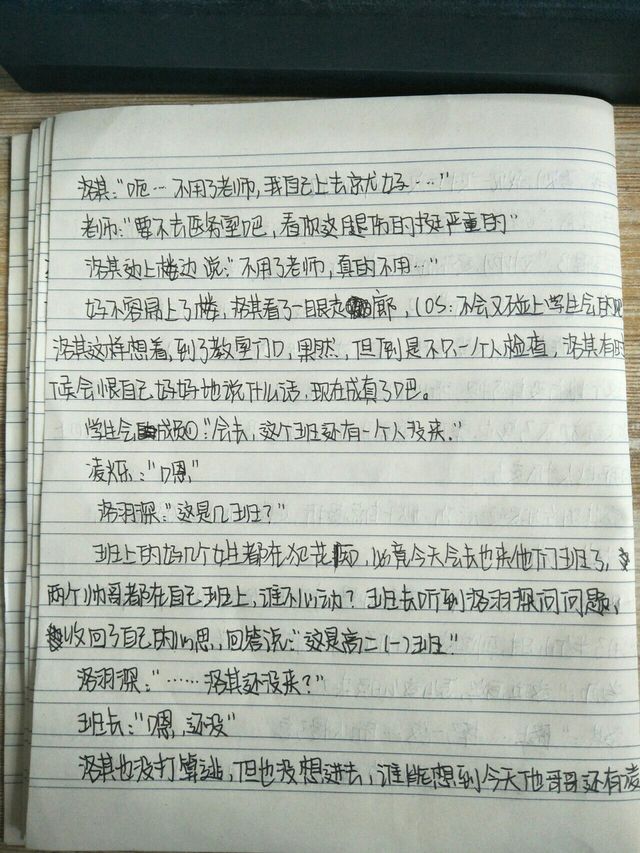 洛其:"呃… 不用了老师,我自己上去就好…"
老师:"要不去医务室吧,看你这腿伤的挺严重的"
洛其边上楼边说:"不用了老师,真的不用…"
好不容易上了楼,洛其看了一眼走廊,(OS:不会又碰上学生会的吧
洛其这样想着,到了教室门口,果然,但倒是不只一个人检查,洛其有时
候会恨自己好好地说什么话,现在成真了吧。
学生会成员①:"会长,这个班还有一个人没来."
凌烁:"嗯"
洛羽深:"这是几班?"
班上的好几个女生都在犯花痴,必竟今天会长也来他们班了,
两个帅哥都在自己班上,谁不心动?班长听到洛羽深问问题,
收回了自己的心思,回答说:"这是高二(一)班"
洛羽深:"……洛其还没来?"
班长:"嗯,还没"
洛其也没打算逃,但也没想进去,谁能想到今天他哥哥还有凌